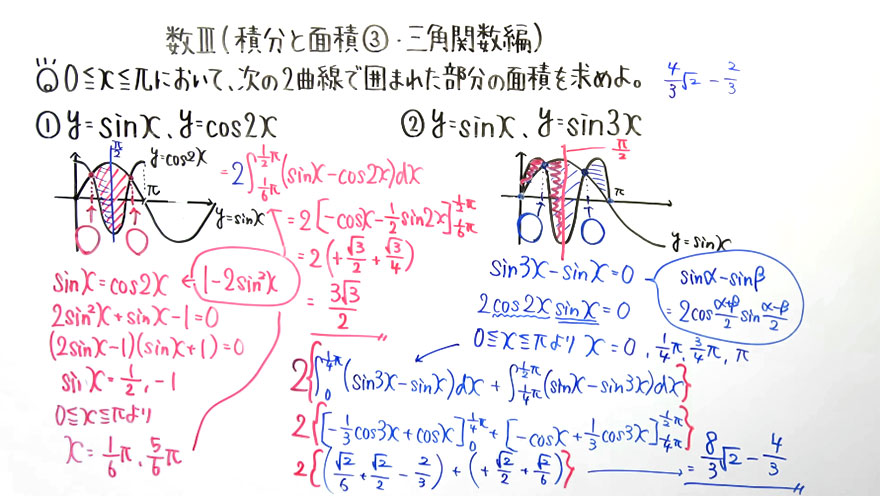 数Ⅲ(積分と面積③・三角関数編)
0≦x≦πにおいて、次の2曲線で囲まれた部分の面積を求めよ。 4/3√2 − 2/3
① y=sinx、y=cos2x
π/2
y=cos2x
π
y=sinx
= 2∫_{1/6π}^{1/2π}(sinx−cos2x)dx
= 2[−cosx−1/2 sin2x]_{1/6π}^{1/2π}
= 2(+√3/2+√3/4)
= 3√3/2
sinx=cos2x ← 1−2sin²x
2sin²x+sinx−1=0
(2sinx−1)(sinx+1)=0
sinx=1/2, −1
0≦x≦πより
x=1/6π, 5/6π
② y=sinx、y=sin3x
π/2
π
y=sinx
sin3x−sinx=0
sinα−sinβ
=2cos (α+β)/2 sin (α−β)/2
2cos2x sinx=0
0≦x≦πより x=0, 1/4π, 3/4π, π
2{∫_0^{1/4π}(sin3x−sinx)dx + ∫_{1/4π}^{1/2π}(sinx−sin3x)dx}
2{[−1/3 cos3x+cosx]_0^{1/4π} + [−cosx+1/3 cos3x]_{1/4π}^{1/2π}}
2{(√2/6+√2/2−2/3)+(+√2/2+√2/6)} → = 8/3√2 − 4/3